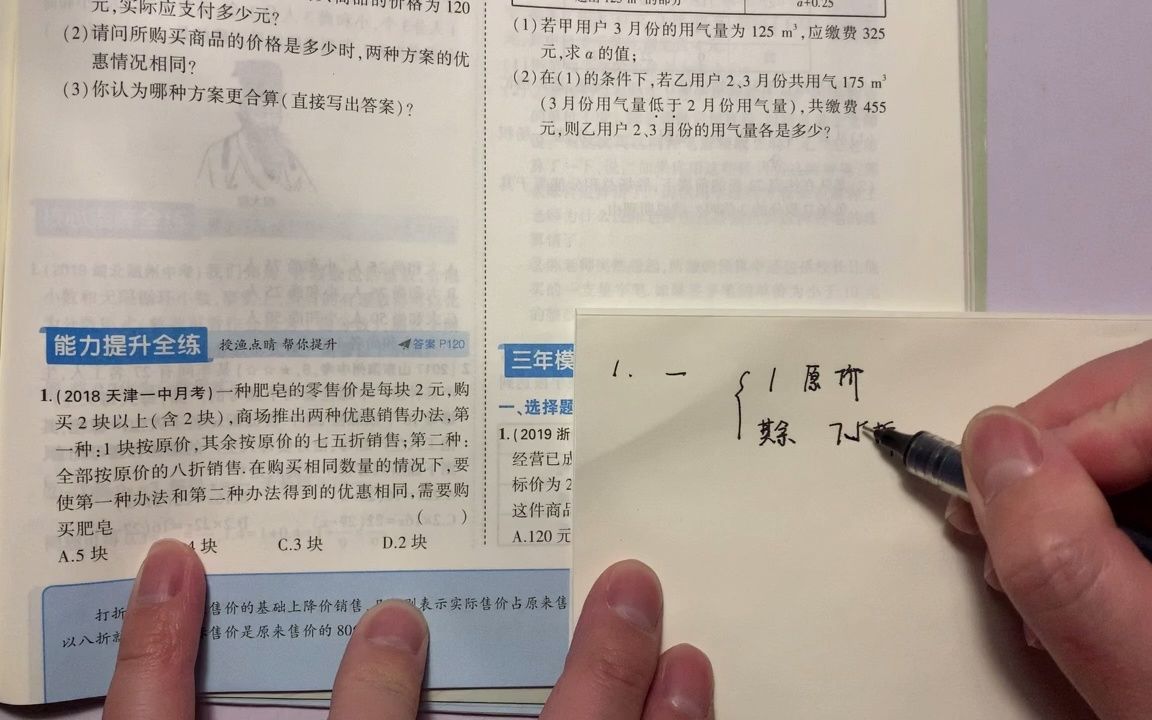 元,实际应支付多少元?
(2)请问所购买商品的价格是多少时,两种方案的优
惠情况相同?
(3)你认为哪种方案更合算(直接写出答案)?
能力提升全练 授渔点睛 帮你提升 答案 P120
1.(2018 天津一中月考)一种肥皂的零售价是每块 2 元,购
买 2 块以上(含 2 块),商场推出两种优惠销售办法,第
一种:1 块按原价,其余按原价的七五折销售;第二种:
全部按原价的八折销售.在购买相同数量的情况下,要
使第一种办法和第二种办法得到的优惠相同,需要购
买肥皂 ( )
A.5 块 4 块 C.3 块 D.2 块
打折 售价的基础上降价销售, 表示实际售价占原来售
以八折 售价是原来售价的 80
a+0.25
(1)若甲用户 3 月份的用气量为 125 m³,应缴费 325
元,求 a 的值;
(2)在(1)的条件下,若乙用户 2、3 月份共用气 175 m³
(3 月份用气量低于 2 月份用气量),共缴费 455
元,则乙用户 2、3 月份的用气量各是多少?
三年模
一、选择题
1.(2019 浙
经营已成
标价为 2
这件商品
A.120 元
1. 一 { 1 原价
其余 7.5折